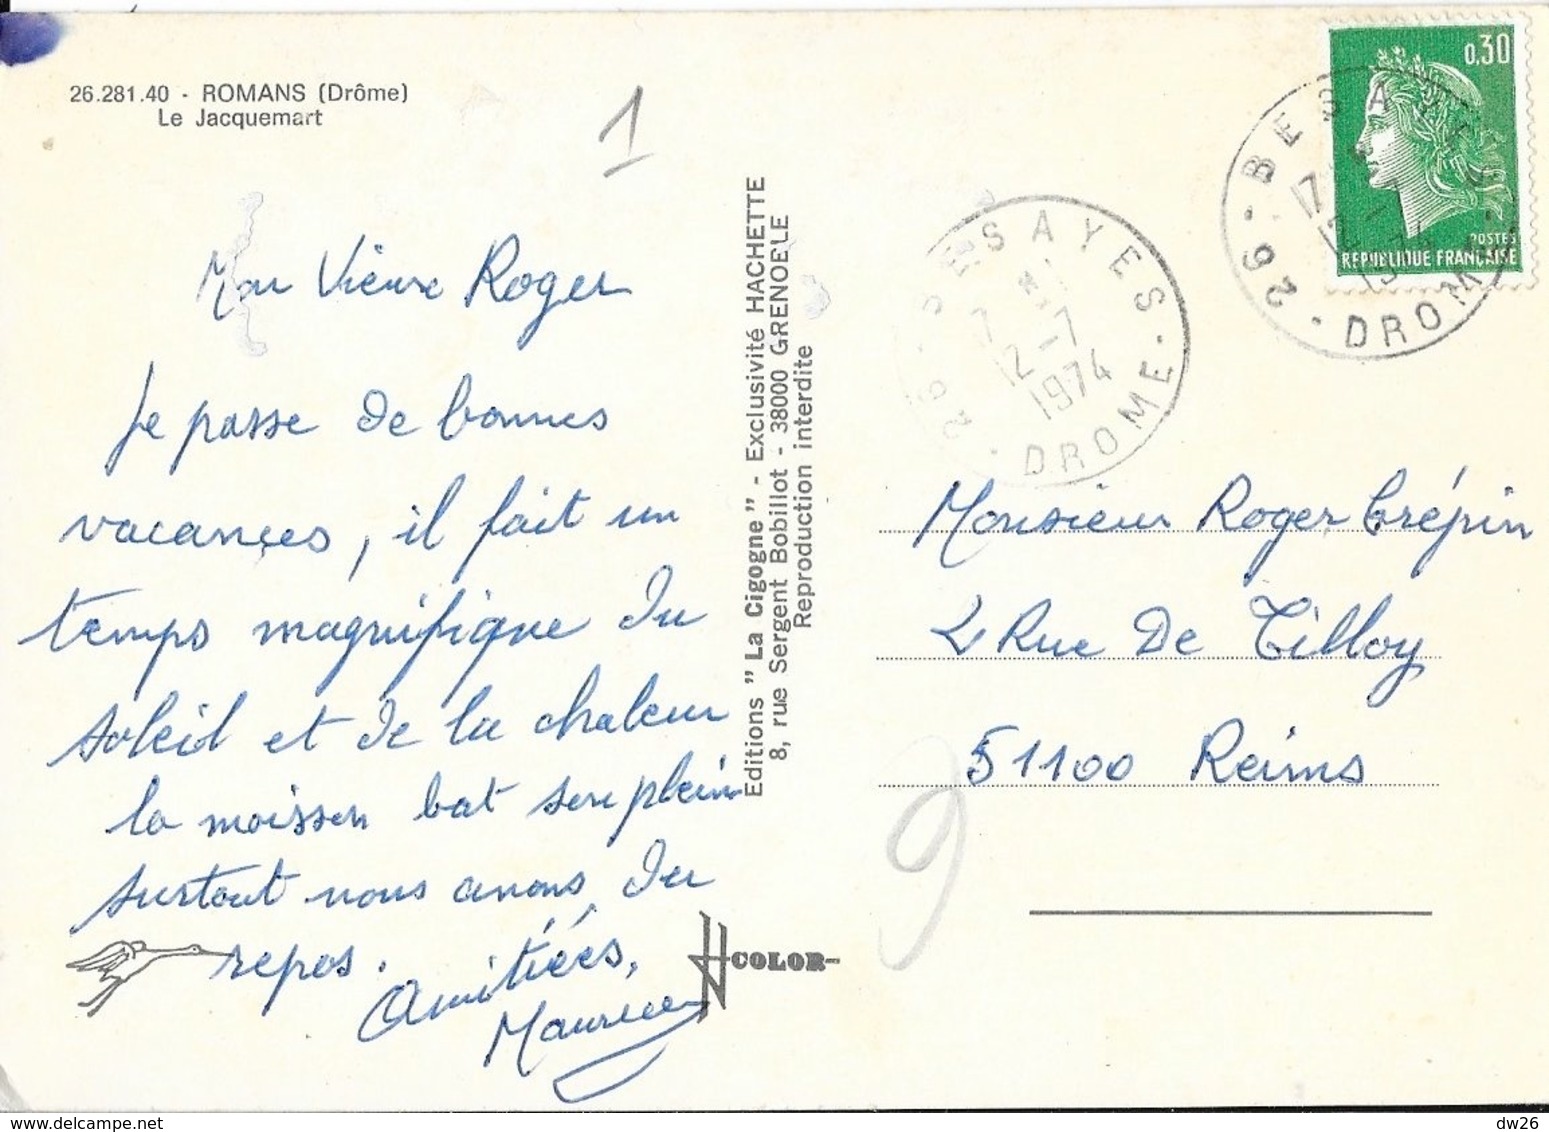 26.281.40 - ROMANS (Drôme)
Le Jacquemart
1
Mon Vieux Roger
Je passe de bonnes
vacances, il fait un
temps magnifique du
soleil et de la chaleur
la moisson bat son plein
surtout nous avons du
repos.
Amitiées,
Maurice
Editions "La Cigogne" - Exclusivité HACHETTE
8, rue Sergent Bobillot - 38000 GRENOBLE
Reproduction interdite
COLOR
BESAYES
12-7
1974
26 - DROME
0,30
POSTES
REPUBLIQUE FRANÇAISE
BESAYES
17
12-7
1974
26 - DROME
Monsieur Roger Crépin
2 Rue De Tilloy
51100 Reims
9
dw26